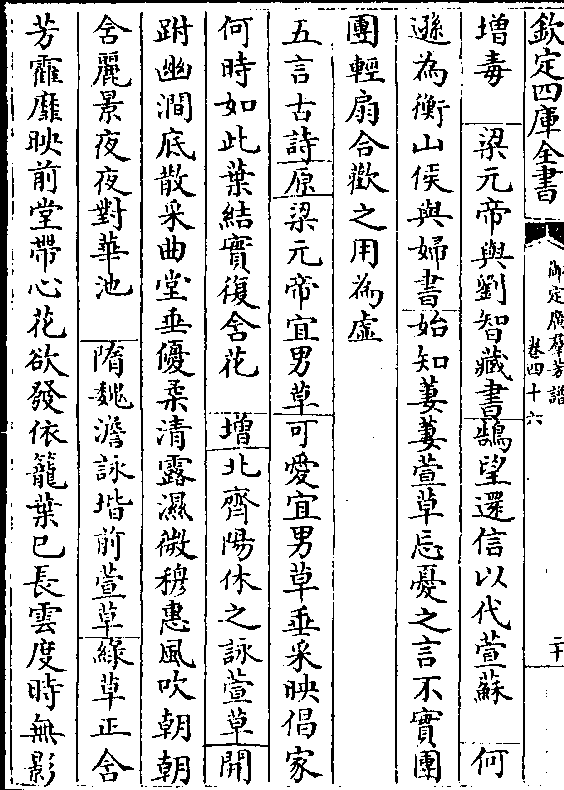 欽定四庫全書
御定廣羣芳譜
卷四十六
二十
增毒　梁元帝與劉智藏書鵠望還信以代萱蘇　何
遜為衡山侯與婦書始知萋萋萱草忘憂之言不實團
團輕扇合歡之用為虛
五言古詩原梁元帝宜男草可愛宜男草垂采映倡家
何時如此葉結實復含花　增北齊陽休之詠萱草開
跗幽澗底散采曲堂垂優柔清露濕微穆惠風吹朝朝
含麗景夜夜對華池　隋魏澹詠堦前萱草綠草正含
芳霍靡映前堂帶心花欲發依籠葉已長雲度時無影